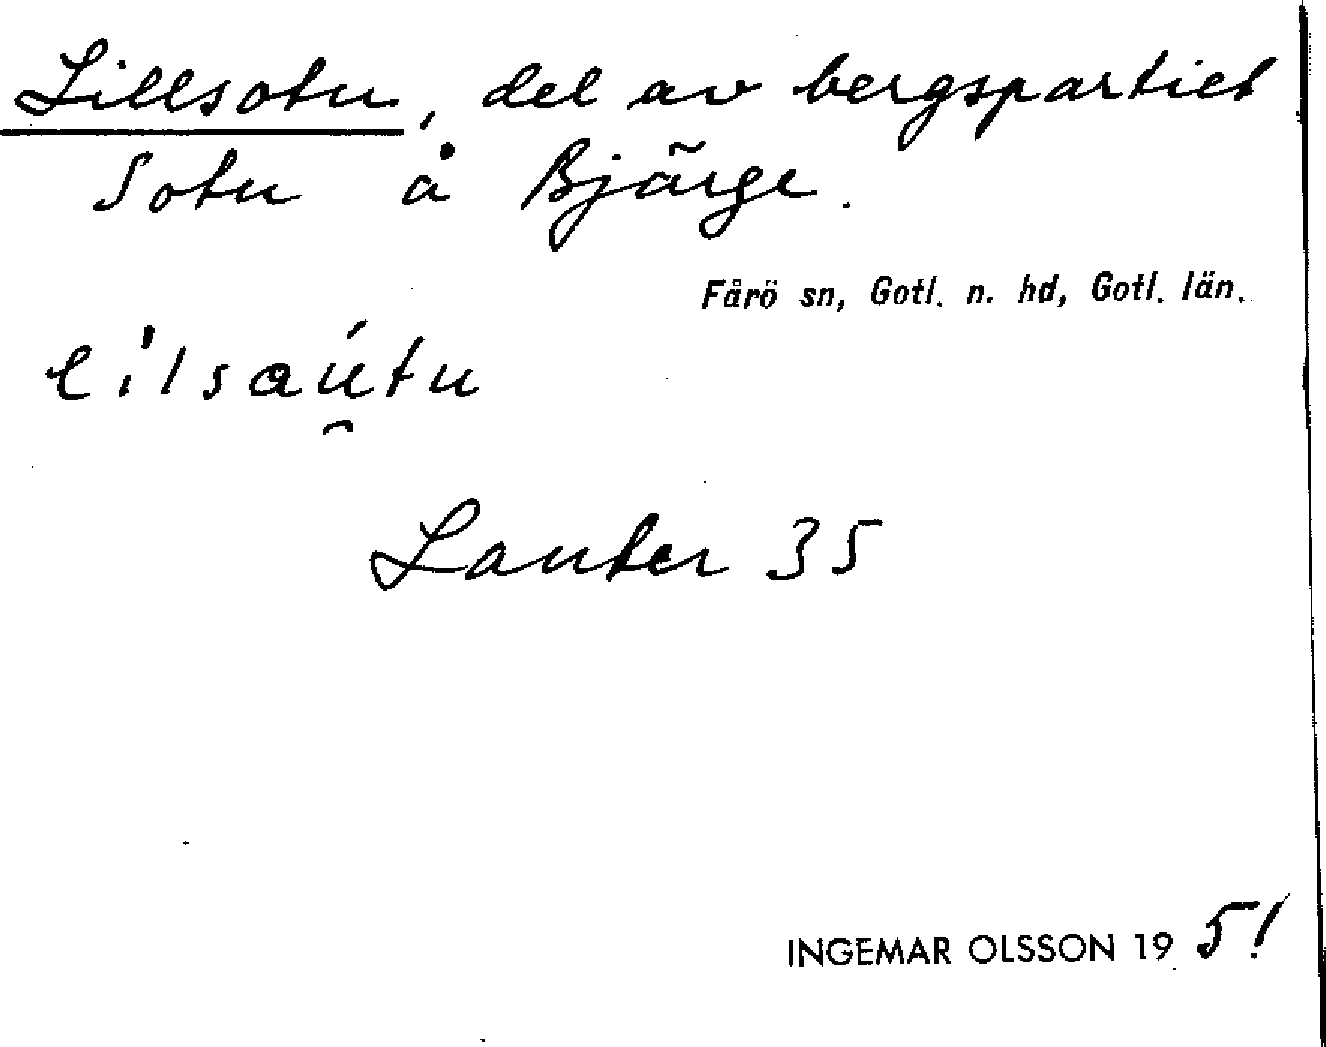 Lillsotu, del av bergspartiet
Sotu å Bjärge.
Fårö sn, Gotl. n. hd, Gotl. län.
li̍lsaú̯tu
Lauter 35
INGEMAR OLSSON 1951